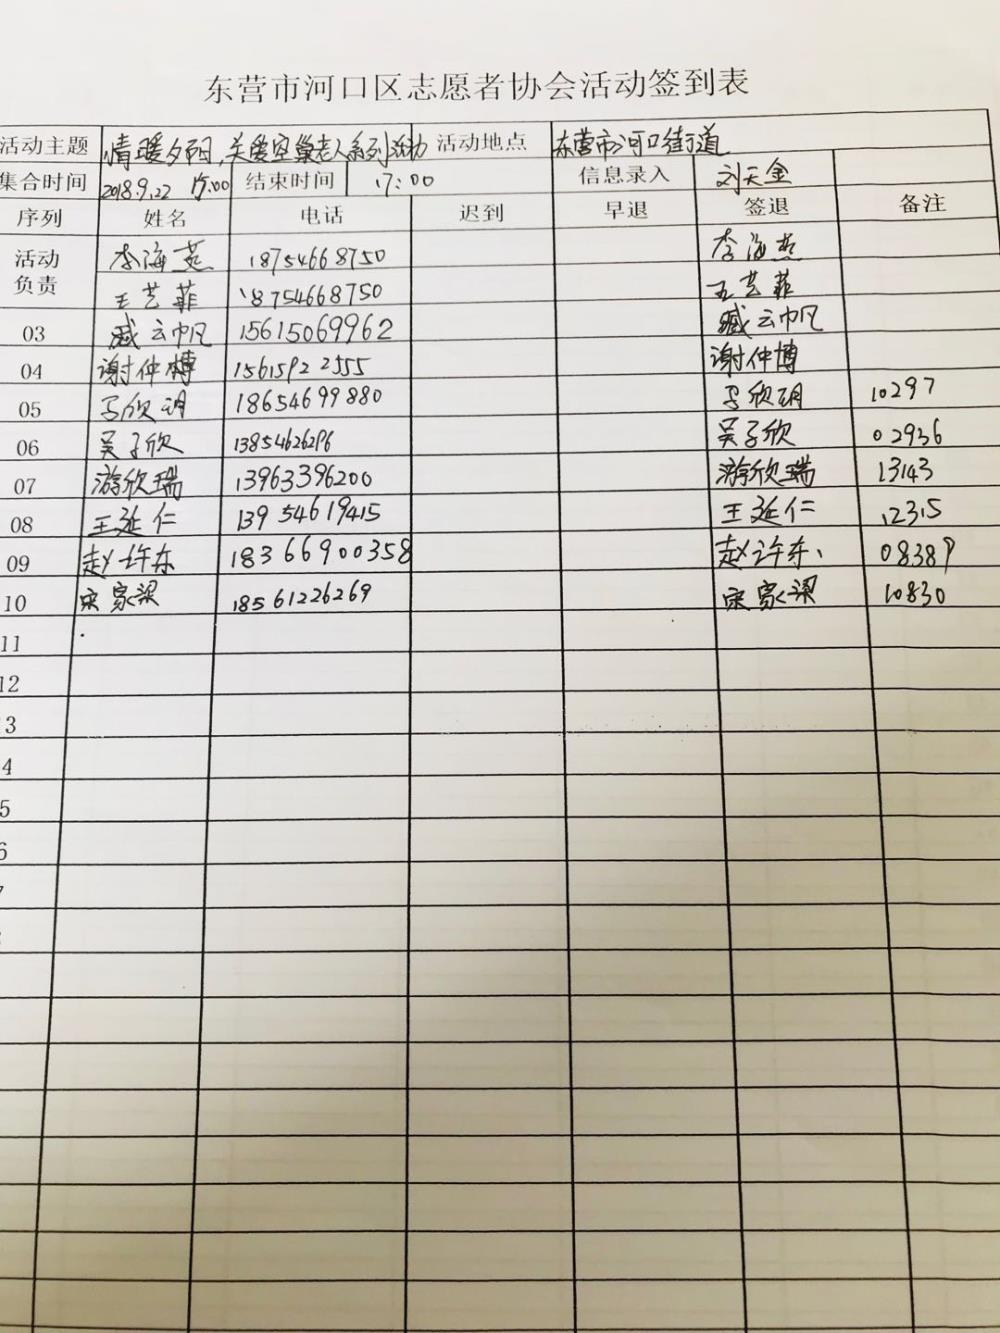 东营市河口区志愿者协会活动签到表
活动主题 情暖夕阳,关爱空巢老人系列活动 活动地点 东营市河口街道
集合时间 2018.9.22 15:00 结束时间 17:00 信息录入 刘天金
序列 姓名 电话 迟到 早退 签退 备注
活动负责 李海燕 18754668750 李海燕
王艺菲 18754668750 王艺菲
03 臧云帆 15615069962 臧云帆
04 谢仲博 15615922555 谢仲博
05 欣玥 18654699880 欣玥 10297
06 吴子欣 13854626296 吴子欣 02936
07 游欣瑞 13963396200 游欣瑞 13143
08 王延仁 13954619415 王延仁 12315
09 赵许东 18366900358 赵许东 08389
10 宋家梁 18561226269 宋家梁 10830
11
12
3
4
5
6
7